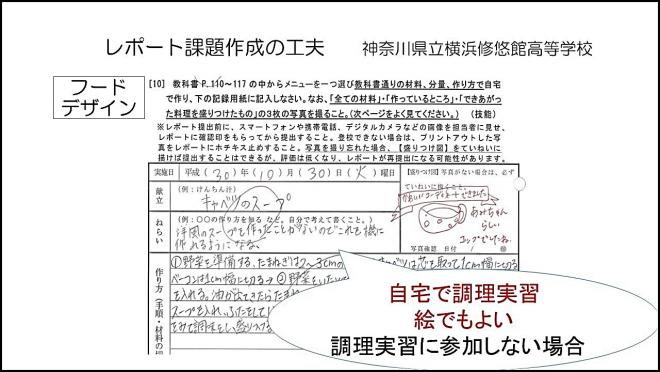 レポート課題作成の工夫　神奈川県立横浜修悠館高等学校
フード
デザイン
[10] 教科書 P.110～117 の中からメニューを一つ選び教科書通りの材料、分量、作り方で自宅
で作り、下の記録用紙に記入しなさい。なお、「全ての材料」・「作っているところ」・「できあがっ
た料理を盛りつけたもの」の3枚の写真を撮ること。(次ページをよく見てください。)　(技能)
※レポート提出前に、スマートフォンや携帯電話、デジタルカメラなどの画像を担当者に見せ、
レポートに確認印をもらってから提出すること。登校できない場合は、プリントアウトした写
真をレポートにホチキス止めすること。写真を撮り忘れた場合、【盛りつけ図】をていねいに
描けば提出することはできるが、評価は低くなり、レポートが再提出になる可能性があります。
実施日　平成(30)年(10)月(30)日(火)曜日　【盛りつけ図】写真がない場合は、必ず
ていねいに描くこと。
献立　(例：けんちん汁)
キャベツのスープ
ねらい　(例：○○の作り方を知る など。自分で考えて書くこと。)
洋風のスープを作ったことがないのでこれを機に
作れるようになる。
らしい
写真確認　日付
作り方(手順・材料の切
①野菜を準備する、たまねぎは2～3cmの
ベーコンは1cm幅に切る→②野菜をいため
を入れる。油が出てきたらたま
スープを入れ、ふたをして
自宅で調理実習
絵でもよい
調理実習に参加しない場合